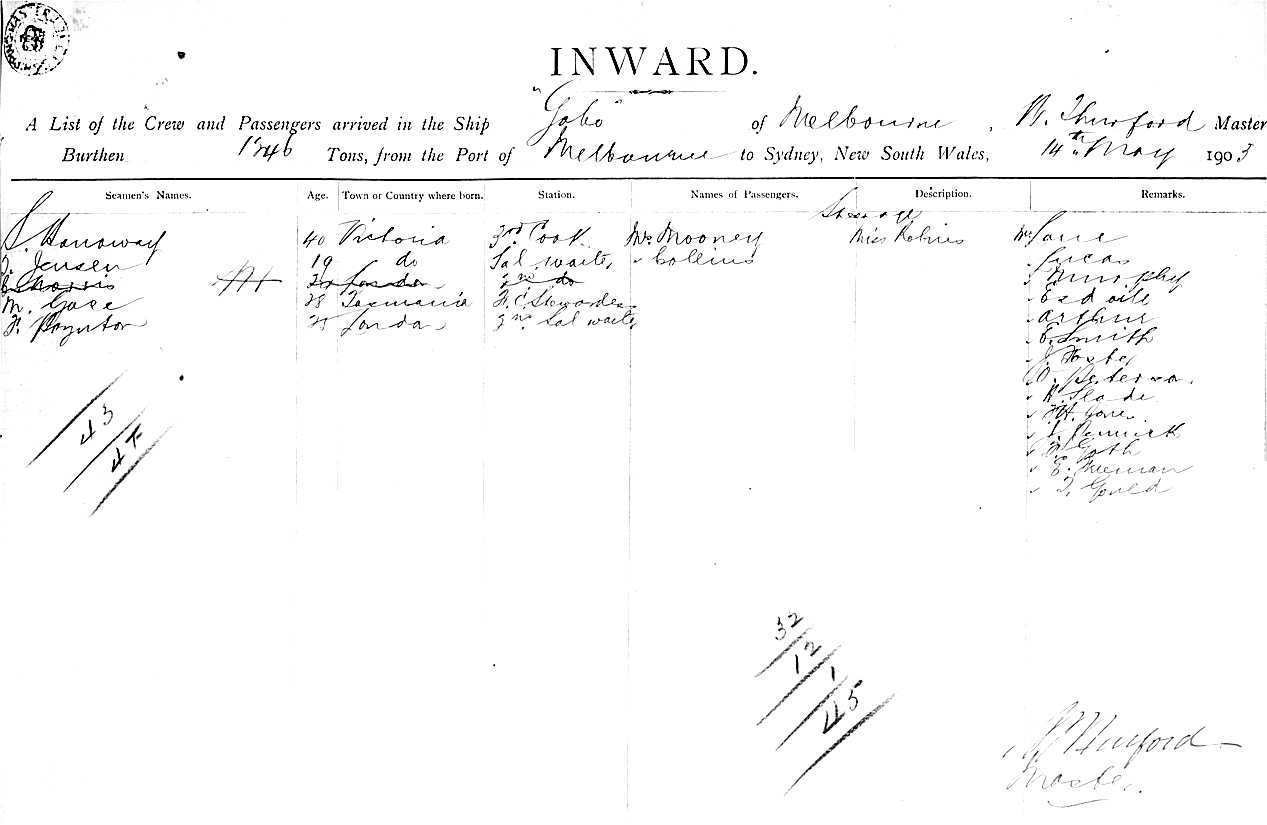 INWARD.
A List of the Crew and Passengers arrived in the Ship "Gabo" of Melbourne, W. Thurford Master
Burthen 1246 Tons, from the Port of Melbourne to Sydney, New South Wales, 14th May 1903
Seamen's Names. Age. Town or Country where born. Station. Names of Passengers. Description. Remarks.
Steerage
S. Hanaway 40 Victoria 3rd Cook Mr Mooney Miss Robins Mr Lane
J. Jensen 19 do Sal waiter " Collins " Lucas
Morris London 2nd do " Murphy
M. Gace 28 Tasmania F.C. Stewardess
F. Poynton 25 London 2nd Sal waiter " Arthur
" E. Smith
" J. Foster
" O. Peterson
" H. Slade
" F.H. Jones
" J. Pennick
" Goth
" E. Freeman
" J. Gould
43
47
32
12
1
45
W Thurford
Master.